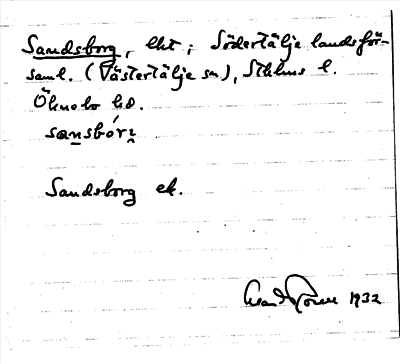 Sandsborg, lht i Södertälje landsför-
saml. (Västertälje sn), Sthlms l.
Öknebo hd.
sansbórj
Sandsborg ek.
1932